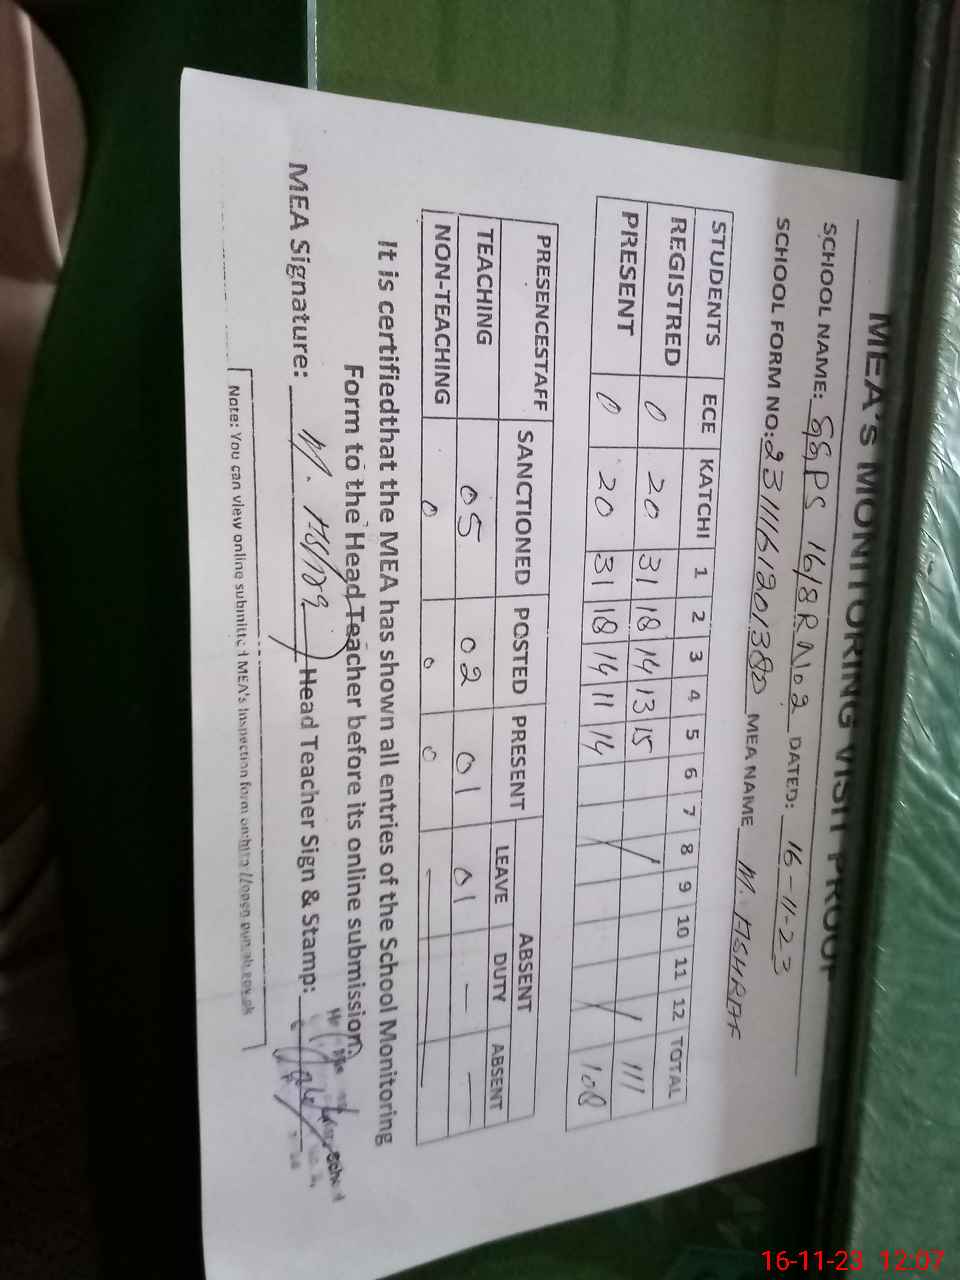 MEA'S MONITORING VISIT PROOF
SCHOOL NAME: GGPS 168R No2 DATED: 16-11-23
SCHOOL FORM NO: MEA NAME M. ASHRAF
STUDENTS ECE KATCHI 1 2 3 4 5 6 7 8 9 10 11 12 TOTAL
REGISTRED 0 20 31 18 14 13 15 111
PRESENT 0 20 31 18 14 11 14 108
PRESENCESTAFF SANCTIONED POSTED PRESENT ABSENT
LEAVE DUTY ABSENT
TEACHING 05 02 01 01 - -
NON-TEACHING 0 0 0 -
It is certifiedthat the MEA has shown all entries of the School Monitoring
Form to the Head Teacher before its online submission.
MEA Signature: Head Teacher Sign & Stamp:
Note: You can view online submitted MEA's Inspection form on
16-11-23 12:07